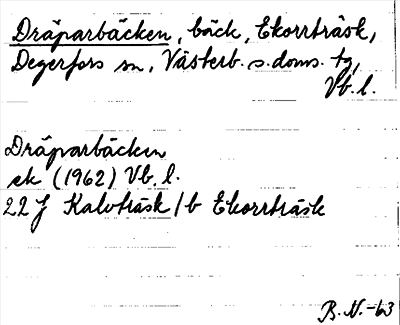 Dräparbäcken, bäck, Ekorrträsk,
Degerfors sn, Västerb. s. doms. tg,
Vb. l.
Dräparbäcken
ek (1962) Vb. l.
22 J Kalvträsk/b Ekorrträsk
B. N. -63